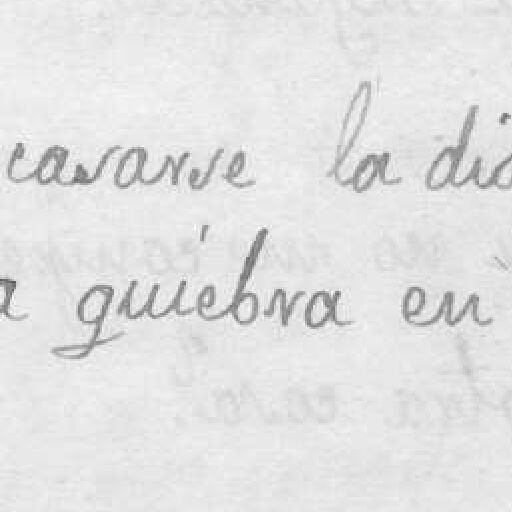 casarse la
a quiebra en